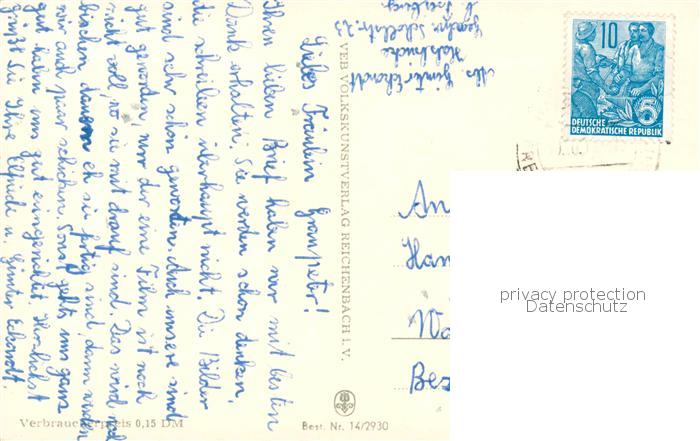 Liebes Fräulein Grampeter!
Ihren lieben Brief haben wir mit besten
Dank erhalten. Sie werden schon denken,
die schreiben überhaupt nicht. Die Bilder
sind sehr schön geworden. Auch unsere sind
gut geworden, nur der eine Film ist noch
nicht voll, wo sie mit drauf sind. Das wird noch
bischen dauern eh sie fertig sind, dann werden
wir auch paar schicken. Sonst gehts uns ganz
gut haben uns gut eingerichtet. Herzlichst
grüßt Sie Ihre Elfriede u. Günter Eckardt.
Abs. Günter Eckardt
Halsbrücke
b. Freiberg
VEB VOLKSKUNSTVERLAG REICHENBACH i. V.
10
5
DEUTSCHE
DEMOKRATISCHE REPUBLIK
privacy protection
Datenschutz
Verbraucherpreis 0,15 DM
Best. Nr. 14/2930